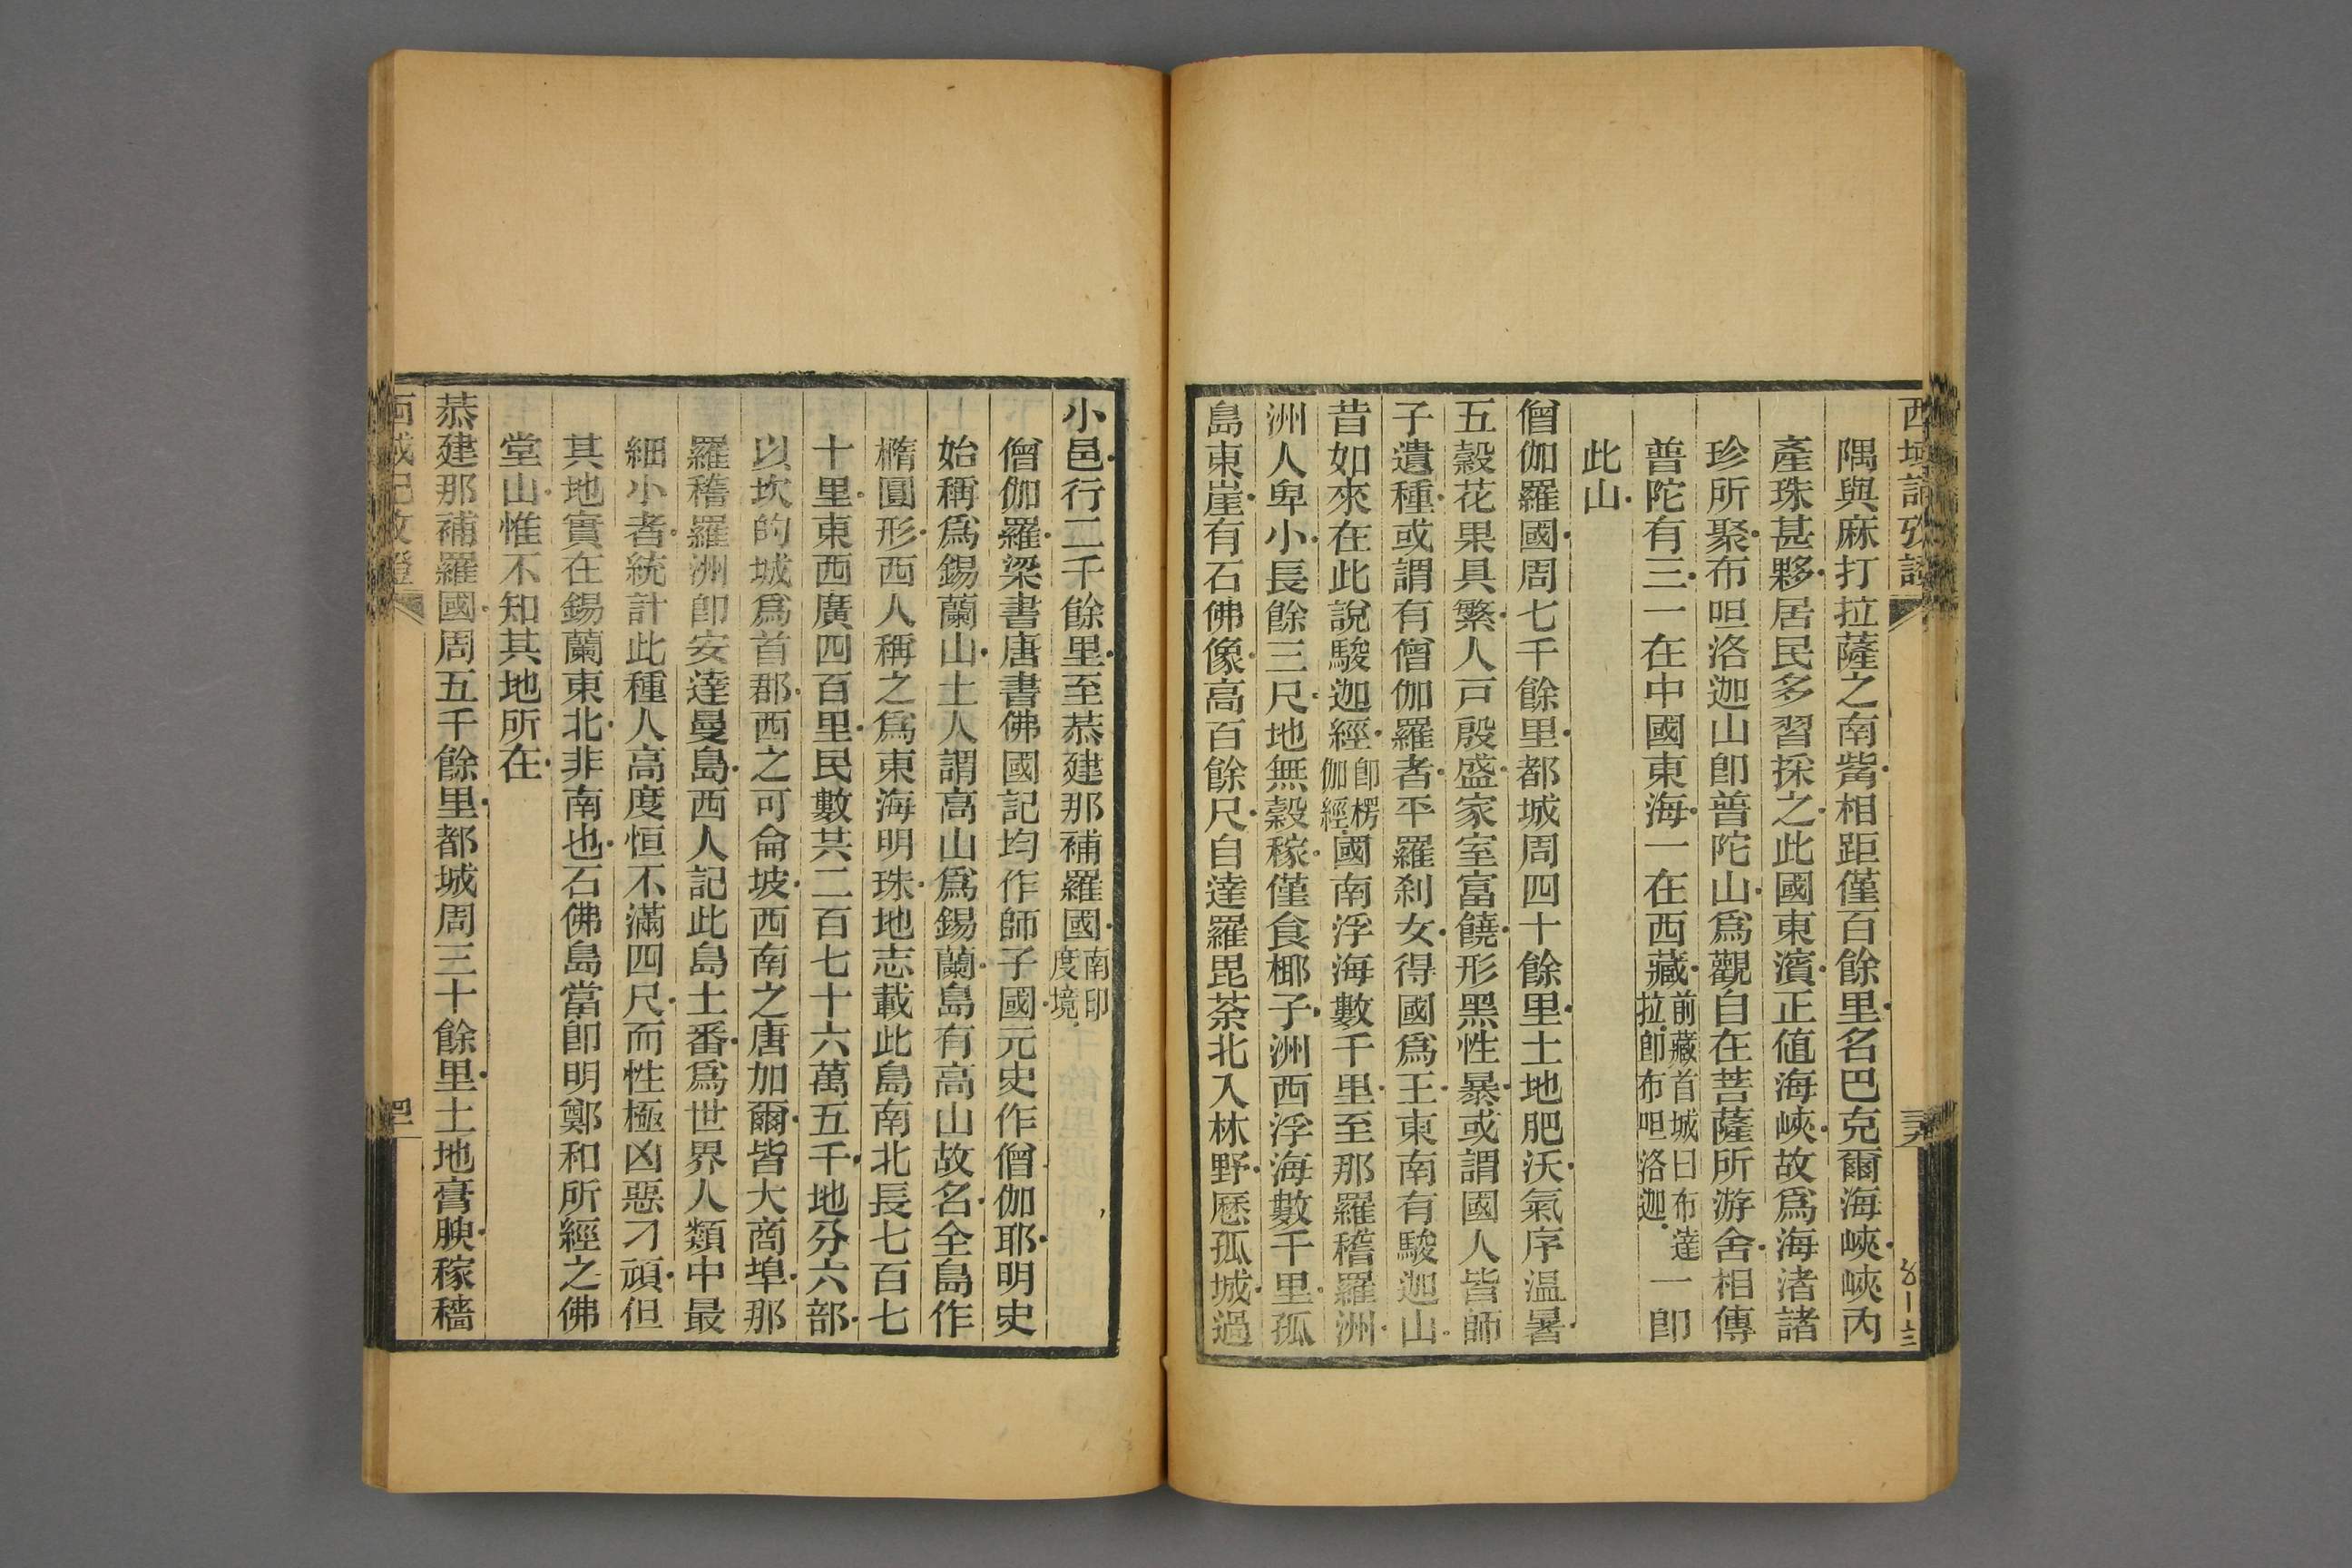 隅與麻打拉薩之南觜相距僅百餘里名巴克爾海峽峽內
產珠甚夥居民多習採之此國東濱正值海峽故爲海渚諸
珍所聚布呾洛迦山卽普陀山爲觀自在菩薩所游舍相傳
普陀有三一在中國東海一在西藏前藏首城曰布達拉卽布呾洛迦一卽
此山
僧伽羅國周七千餘里都城周四十餘里土地肥沃氣序温暑
五穀花果具繁人戸殷盛家室富饒形黑性暴或謂國人皆師
子遺種或謂有僧伽羅者平羅刹女得國爲王東南有駿迦山
昔如來在此說駿迦經卽楞伽經國南浮海數千里至那羅稽羅洲
洲人卑小長餘三尺地無穀稼僅食椰子洲西浮海數千里孤
島東崖有石佛像高百餘尺自達羅毘荼北入林野歷孤城過
小邑行二千餘里至恭建那補羅國南印度境
僧伽羅梁書唐書佛國記均作師子國元史作僧伽耶明史
始稱爲錫蘭山土人謂高山爲錫蘭島有高山故名全島作
橢圓形西人稱之爲東海明珠地志載此島南北長七百七
十里東西廣四百里民數共二百七十六萬五千地分六部
以坎的城爲首郡西之可侖坡西南之唐加爾皆大商埠那
羅稽羅洲卽安達曼島西人記此島土番爲世界人類中最
細小者統計此種人高度恒不滿四尺而性極凶惡刁頑但
其地實在錫蘭東北非南也石佛島當卽明鄭和所經之佛
堂山惟不知其地所在
恭建那補羅國周五千餘里都城周三十餘里土地膏腴稼穡